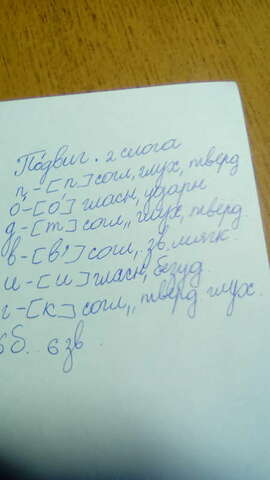 Подвиг. 2 слога
п - [п] согл, глух, тверд
о - [о́] гласн, ударн
д - [т] согл,, глух, тверд.
в - [в'] согл,, зв. мягк.
и - [и] гласн, безуд.
г - [к] согл,, тверд глух.
6б. 6 зв.